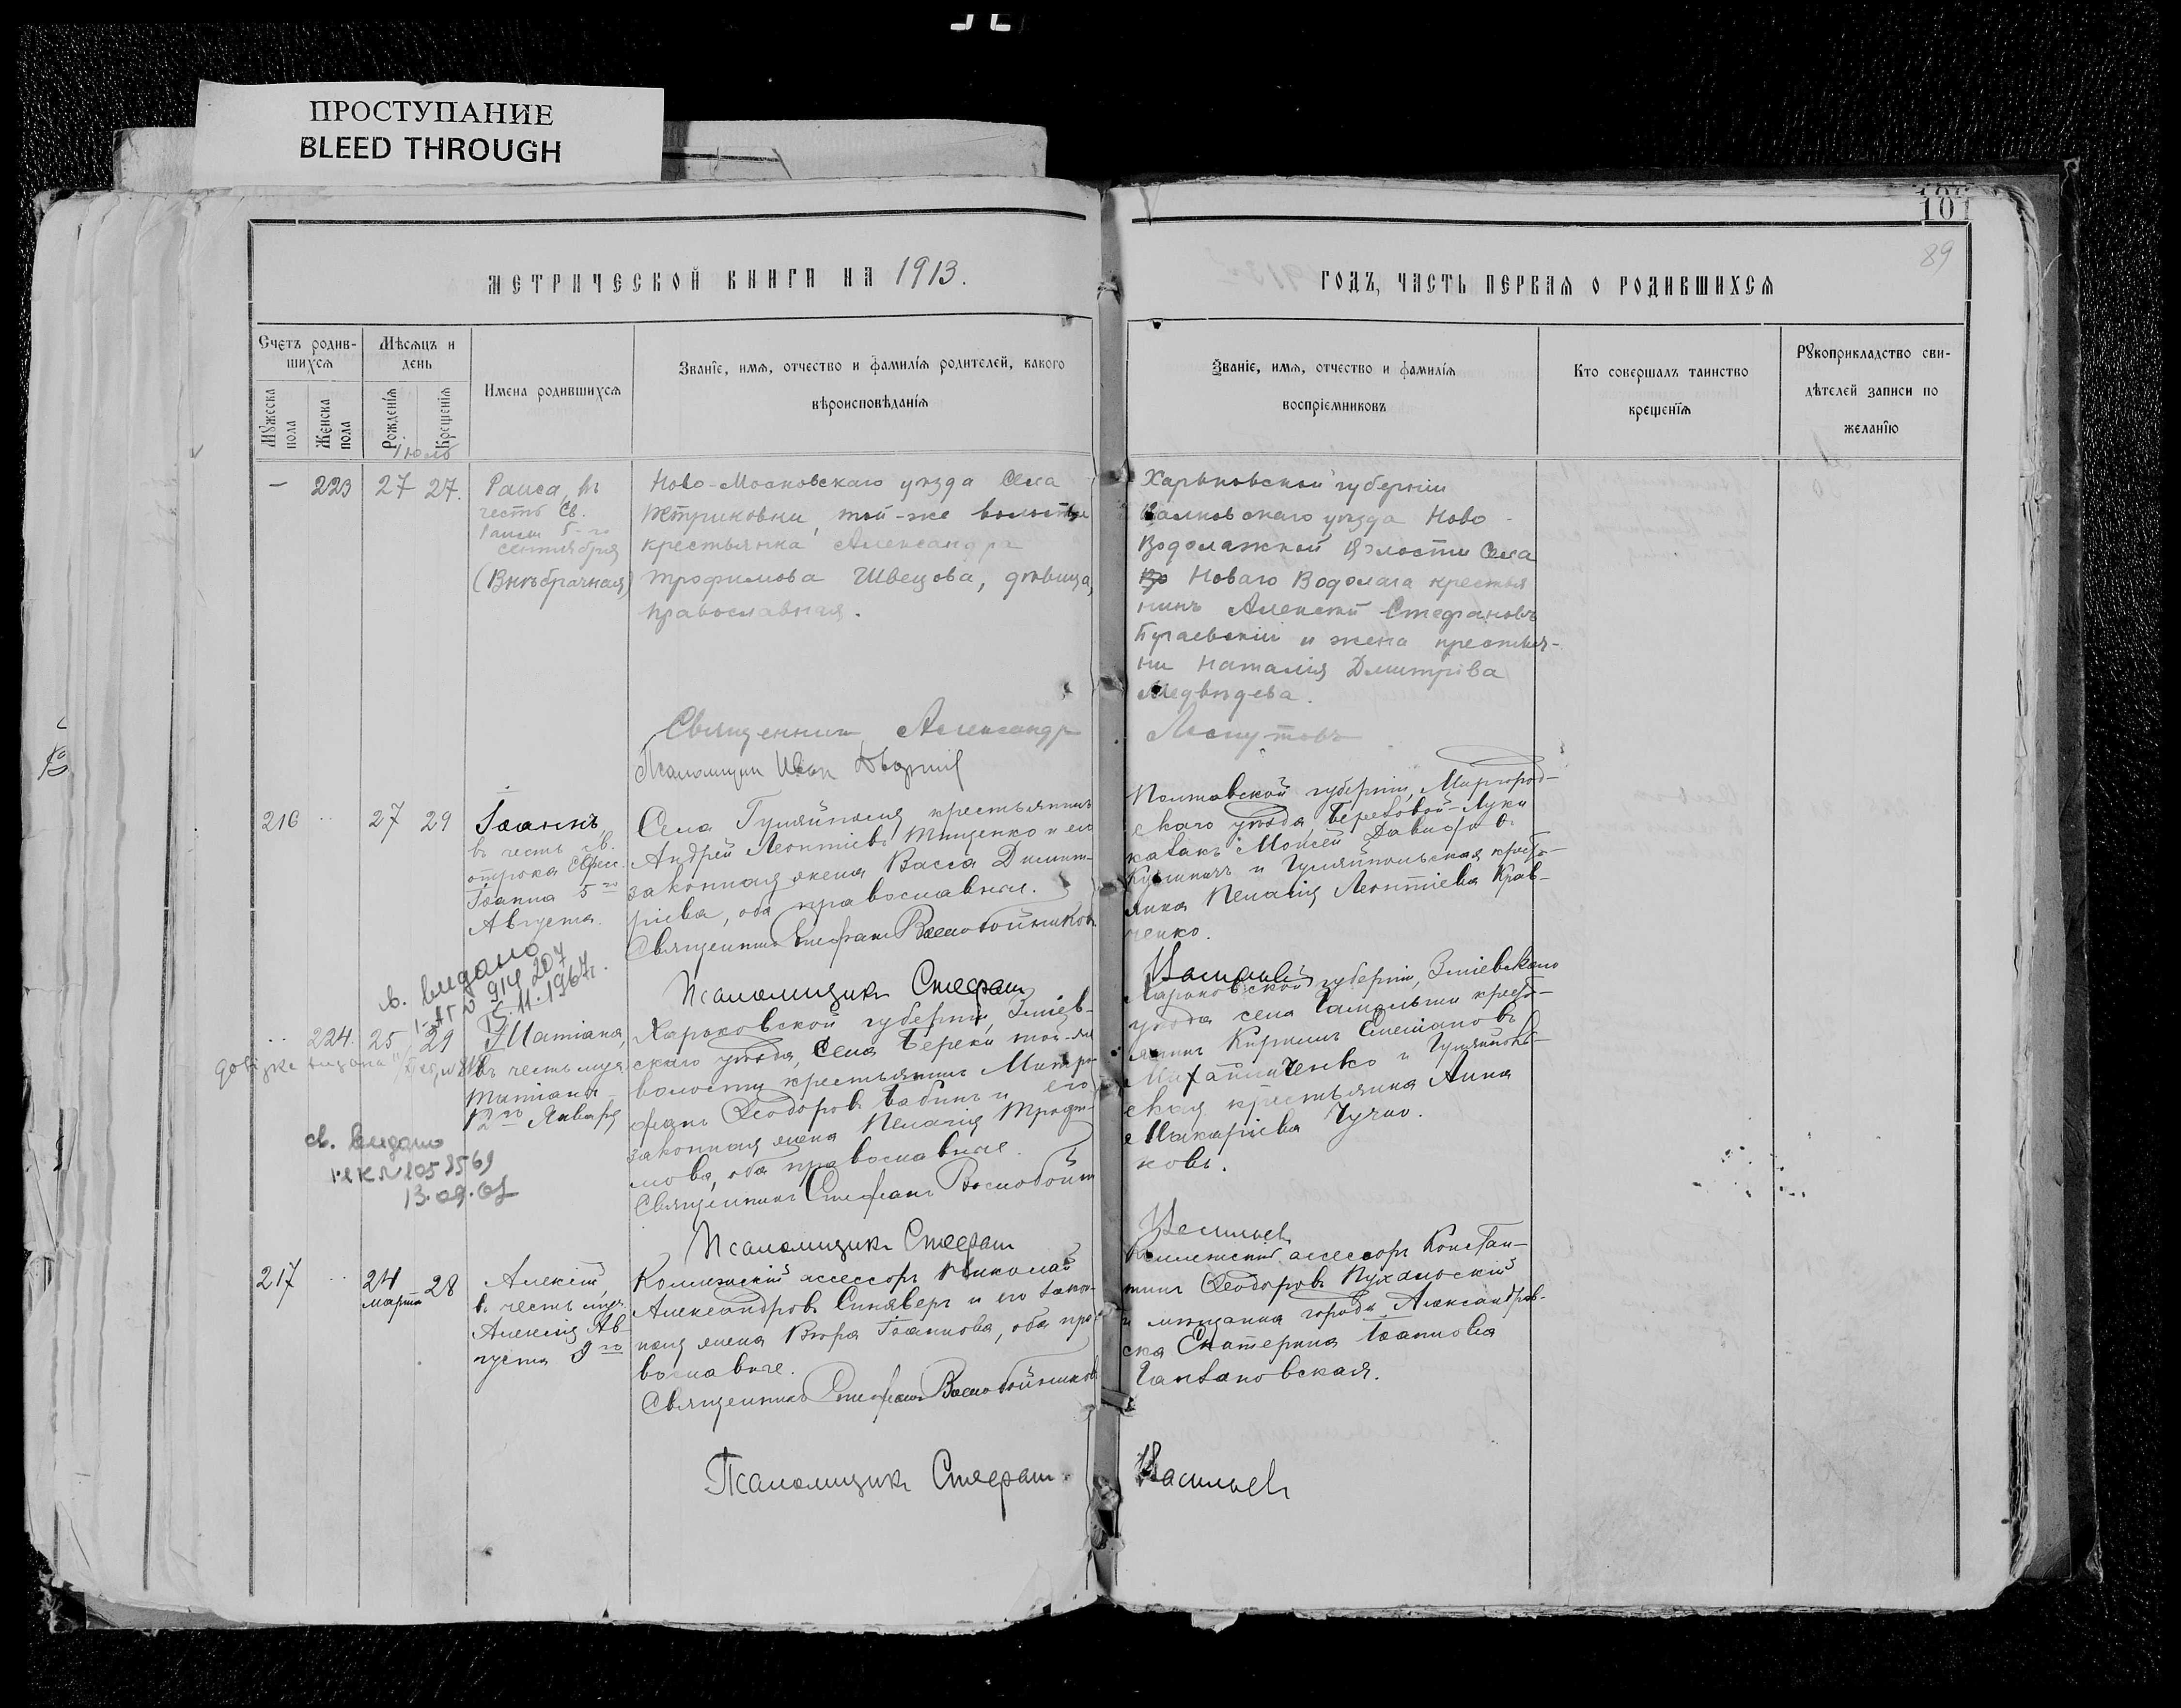 ПРОСТУПАНИЕ
BLEED THROUGH
101
89
МЕТРИЧЕСКОЙ КНИГИ НА 1913.
ГОДЪ, ЧАСТЬ ПЕРВАЯ О РОДИВШИХСЯ
Счетъ родив-
шихся
Мужеска
пола
Женска
пола
Мѣсяцъ и
день
Рожденія
Крещенія
Имена родившихся
Званіе, имя, отчество и фамилія родителей, какого
вѣроисповѣданія
Званіе, имя, отчество и фамилія
воспріемниковъ
Кто совершалъ таинство
крещенія
Рукоприкладство сви-
дѣтелей записи по
желанію
Іюль
— 223 27 27.
Раиса, въ
честь Св.
Раисы 5-го
сентября
(Внѣбрачная)
Ново-Московскаго уѣзда Села
Петриковки, той-же волости
крестьянка Александра
Трофимова Швецова, дѣвица,
православная.
Харьковской губерніи
Валковскаго уѣзда Ново-
Водолажской волости Села
Новаго Водолага крестья
нинъ Алексѣй Стефановъ
Бугаевскій и жена крестья-
ни Наталія Дмитріва
Медвѣдева.
Священник Александр
Псаломщик Иван
216 27 29
Іоаннъ,
въ честь св.
отрока Ефес.
Іоанна 5го
Августа.
Села Гуляйполя крестьянинъ
Андрей Леонтіевъ Тищенко и его
законная жена Васса Димит-
ріева, оба православные.
Священникъ Стефанъ Воскобойниковъ
Псаломщикъ Стефан Васильев
Полтавской губерніи, Миргород-
скаго уѣзда Березовой-Луки
казакъ Моисей Давидовъ
и Гуляйпольская кресть-
янка Пелагія Леонтіева Крав-
ченко.
св. видано
15.11.1967г.
224. 25 29
Татіана,
въ честь муч.
Татіаны
12го Января
довідка видана
св. видано
13.09.01
Харьковской губерніи, Зміев-
скаго уѣзда, Села Береки той-же
волости крестьянинъ Митро
фанъ Ѳеодоровъ Бабинъ и его
законная жена Пелагія Трофи-
мова, оба православные.
Священникъ Стефанъ Воскобойн
Псаломщикъ Стефан Васильев
Харьковской губерніи, Зміевскаго
уѣзда села кресть-
янинъ Кириллъ Степановъ
Михайличенко и Гуляйполь-
ская крестьянка Анна
Макаріева
кова.
217 24 28
марта
Алексій,
въ честь муч.
Алексія Ав-
густа 9го
Коллежскій ассессоръ Николай
Александровъ Синяверъ и его закон-
ная жена Вѣра Іоаннова, оба пра-
вославные.
Священникъ Стефанъ Воскобойниковъ
Коллежскій ассессоръ Констан-
тинъ Ѳеодоровъ Пухальскій
и мѣщанка города Александров-
ска Екатерина Іоаннова
Гантановская.
Псаломщикъ Стефан Васильев